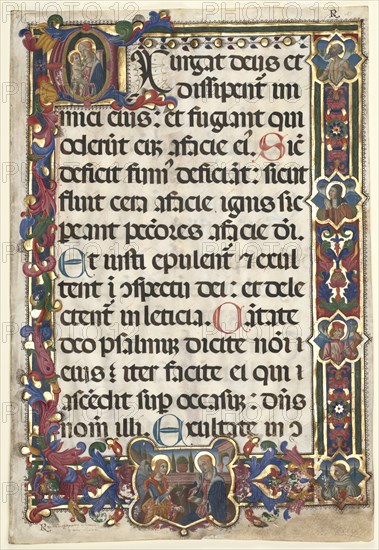 Exurgat deus et
dissipent̄ ini
mici eius: et fugant qui
oderūt eū afacie ei᷒. Sic̄
deficit fum᷒ deficiāt: sicut
fluit cera afacie ignis sic
peant pccōres afacie dēi.
Et iusti epulent̄ ⁊ exul
tent ī ꝯspectu dei: et dele
ctent̄ in leticia. Cātate
deo psalmuꝫ dicite noīi
eius: iter facite ei qui
ascēdit suꝑ occasuꝫ: dn̄s
nom̄ illi. Exultate in ↄ